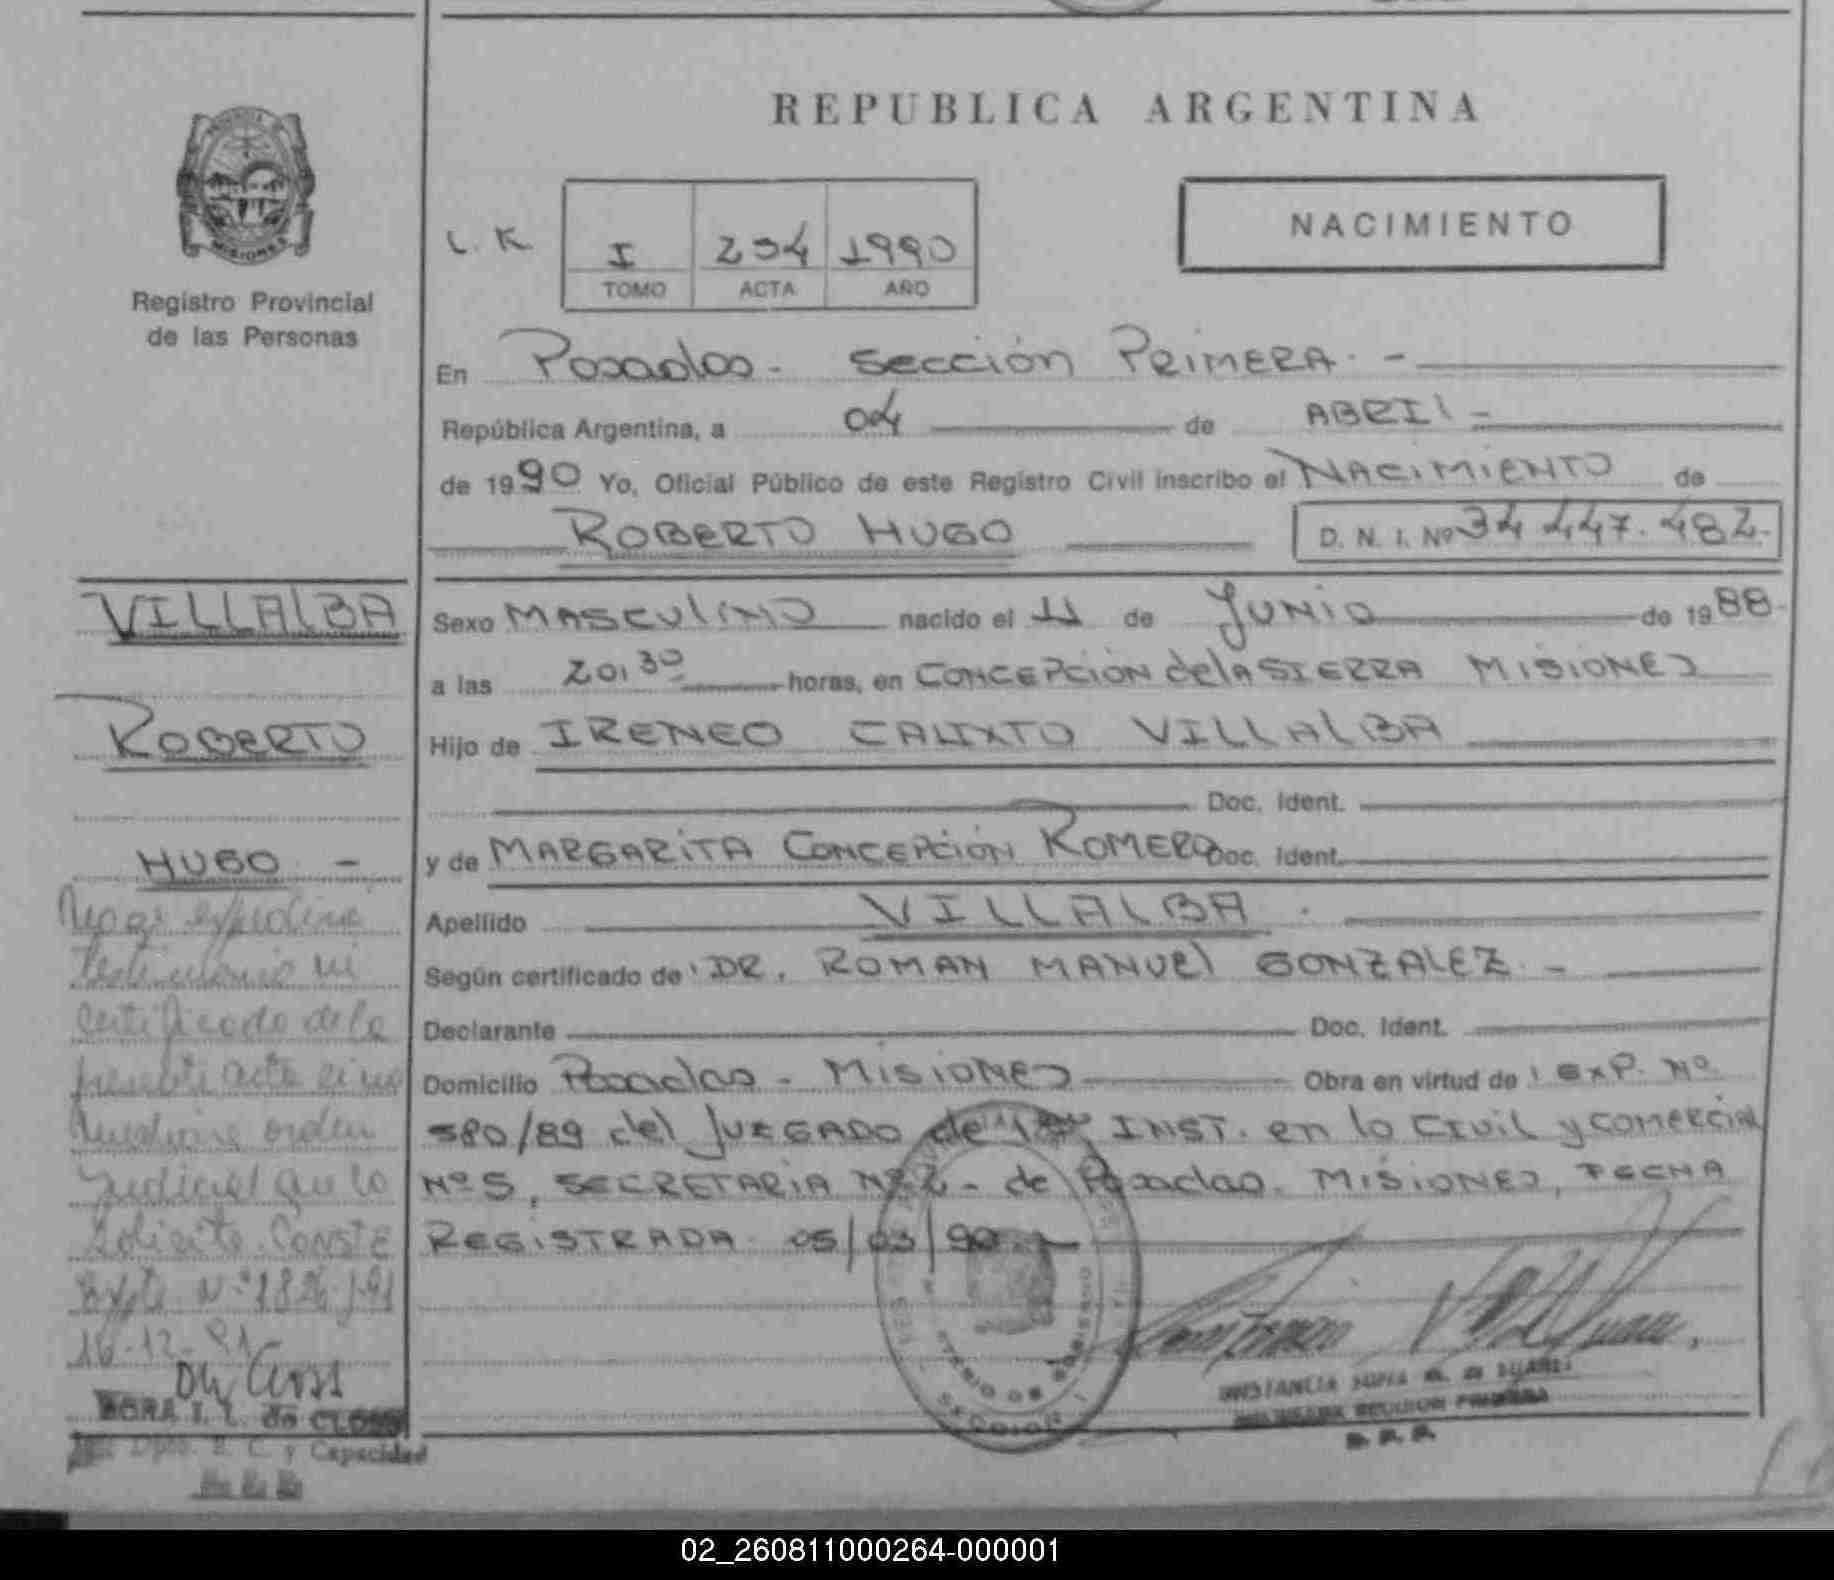 REPUBLICA ARGENTINA
MISIONES
Registro Provincial
de las Personas
L. K
I 234 1990
TOMO ACTA AÑO
NACIMIENTO
En Posadas - Sección Primera. -
República Argentina, a 04 de ABRIL -
de 1990 Yo, Oficial Público de este Registro Civil inscribo el NACIMIENTO de
ROBERTO HUGO D. N. I. Nº 34 447.482-
VILLALBA
ROBERTO
HUGO -
Sexo MASCULINO nacido el 11 de JUNIO de 1988-
a las 20,30 horas, en CONCEPCIÓN de la SIERRA MISIONES
Hijo de IRENEO CALIXTO VILLALBA
Doc. Ident.
y de MARGARITA CONCEPCIÓN ROMERO Doc. Ident.
Apellido VILLALBA.
Según certificado de: DR. ROMAN MANUEL GONZALEZ. -
Declarante Doc. Ident.
Domicilio Posadas - MISIONES Obra en virtud de: EXP. Nº
580/89 del JUZGADO de 1ra INST. en lo CIVIL y COMERCIAL
Nº 5, SECRETARIA Nº 2 - de Posadas. MISIONES, FECHA
REGISTRADA 05/03/90
testimonio ni
certificado de la
presente acta si no
mediare orden
judicial que lo
solicite. CONSTE
Expte Nº 1826/91
16-12-91
DORA I. L. de CLOSS
Dpto. E. C. y Capacidad
SECCION 1
SECCION PRIMERA
R. P. P.
02_260811000264-000001